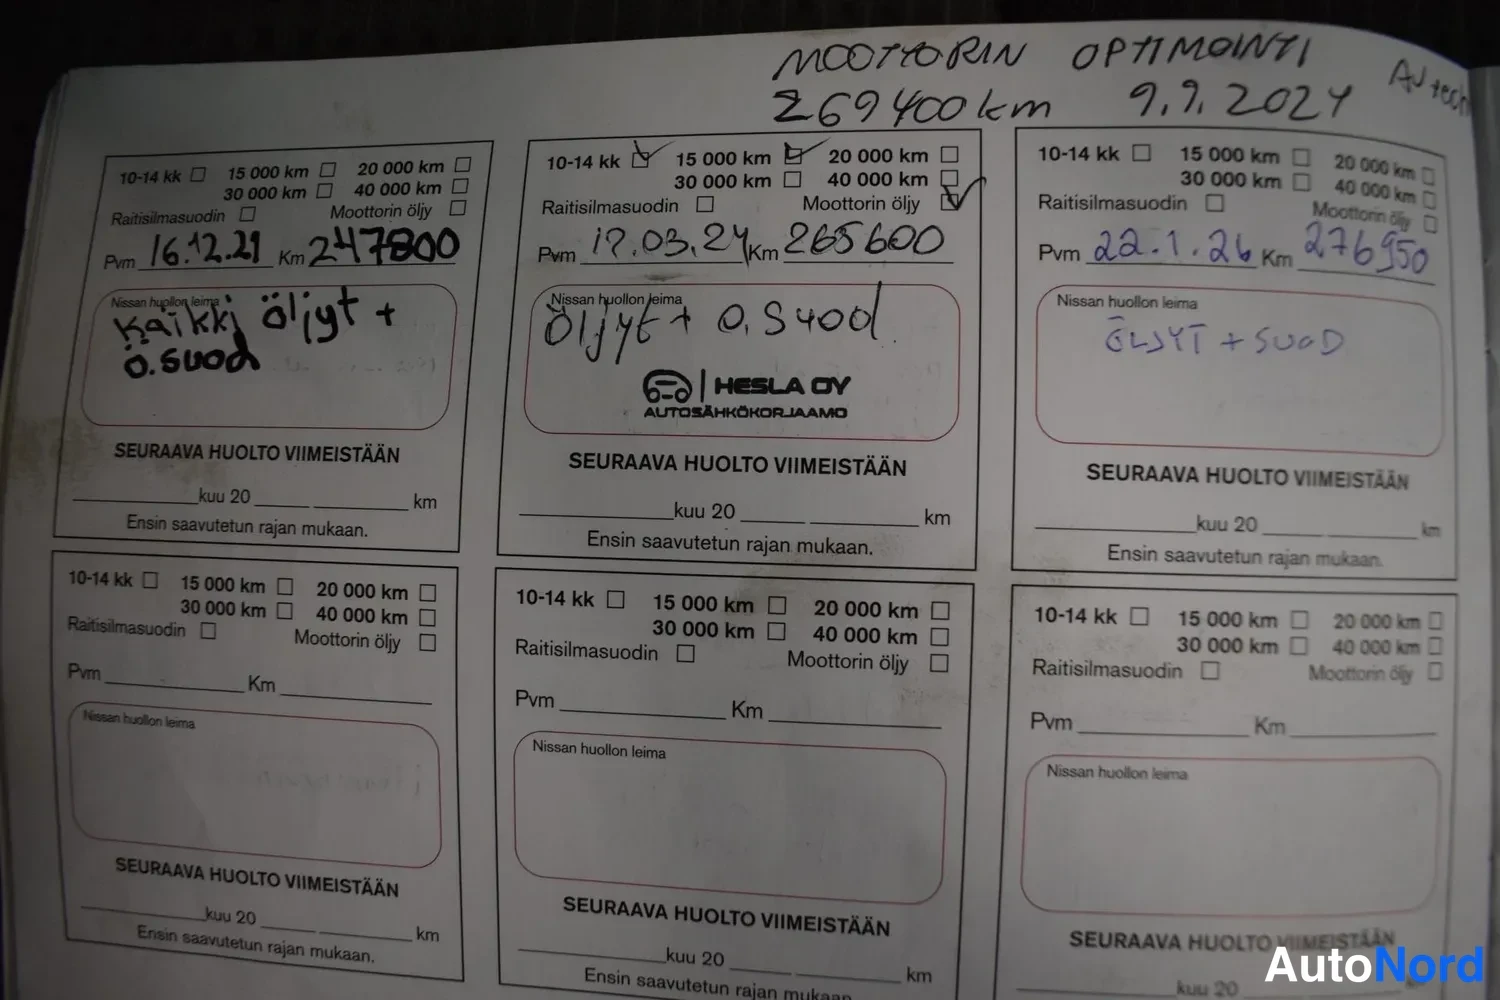 MOOTTORIN OPTIMOINTI
269400km 9.9.2024
AV tech
10-14 kk 15 000 km 20 000 km
30 000 km 40 000 km
Raitisilmasuodin Moottorin öljy
Pvm 16.12.21 Km 247800
Nissan huollon leima
Kaikki öljyt +
ö.suod
SEURAAVA HUOLTO VIIMEISTÄÄN
kuu 20 km
Ensin saavutetun rajan mukaan.
10-14 kk 15 000 km 20 000 km
30 000 km 40 000 km
Raitisilmasuodin Moottorin öljy
Pvm 12.03.24 Km 265600
Nissan huollon leima
Öljyt + ö.suod
HESLA OY
AUTOSÄHKÖKORJAAMO
SEURAAVA HUOLTO VIIMEISTÄÄN
kuu 20 km
Ensin saavutetun rajan mukaan.
10-14 kk 15 000 km 20 000 km
30 000 km 40 000 km
Raitisilmasuodin Moottorin öljy
Pvm 22.1.26 Km 276950
Nissan huollon leima
ÖLJYT + SUOD
SEURAAVA HUOLTO VIIMEISTÄÄN
kuu 20 km
Ensin saavutetun rajan mukaan.
10-14 kk 15 000 km 20 000 km
30 000 km 40 000 km
Raitisilmasuodin Moottorin öljy
Pvm Km
Nissan huollon leima
SEURAAVA HUOLTO VIIMEISTÄÄN
kuu 20 km
Ensin saavutetun rajan mukaan.
10-14 kk 15 000 km 20 000 km
30 000 km 40 000 km
Raitisilmasuodin Moottorin öljy
Pvm Km
Nissan huollon leima
SEURAAVA HUOLTO VIIMEISTÄÄN
kuu 20 km
Ensin saavutetun rajan mukaan.
10-14 kk 15 000 km 20 000 km
30 000 km 40 000 km
Raitisilmasuodin Moottorin öljy
Pvm Km
Nissan huollon leima
SEURAAVA HUOLTO VIIMEISTÄÄN
kuu 20 km
AutoNord